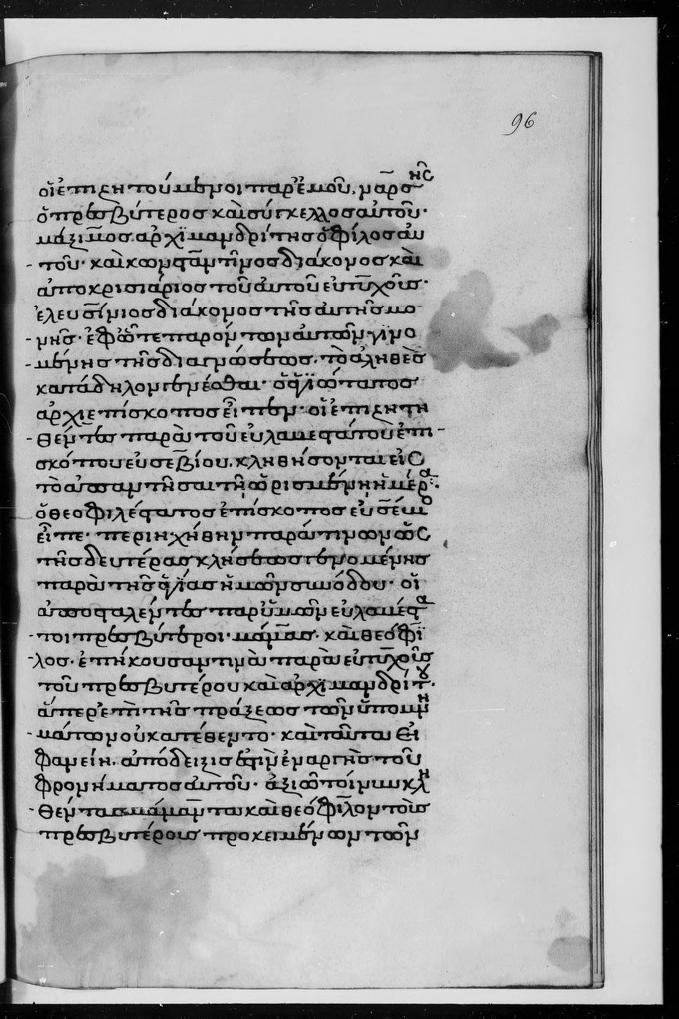 96
οἱ ἐπιζητούμενοι παρ' ἐμοῦ, ναρσῆς
ὁ πρεσβύτερος καὶ σύγκελλος αὐτοῦ·
μάξιμος ἀρχιμανδρίτης ὁ φίλος αυ
τοῦ· καὶ κωνσταντῖνος διάκονος καὶ
ἀποκρισιάριος τοῦ αὐτοῦ εὐτυχοῦς·
ἐλευσίνιος διάκονος τῆς αὐτῆς μο
νῆς· ἐφ' ὧτε παρόντων αὐτῶν γινο
μένης τῆς διαγνώσεως, τὸ ἀληθὲς
κατάδηλον γενέσθαι· ὁ ἁγιώτατος
ἀρχιεπίσκοπος εἶπεν· οἱ ἐπιζητη
θέντες παρὰ τοῦ εὐλαβεστάτου ἐπι
σκόπου εὐσεβίου, κληθήσονται εἰς
τὸ ἀπαντῆσαι τῇ ὡρισμένῃ ἡμέρα·
ὁ θεοφιλέστατος ἐπίσκοπος εὐσέβιο
εἶπε· περιηχήθην παρά τινων ὡς
τῆς δευτέρας κλήσεως γενομένης
παρὰ τῆς ἁγίας ἡμῶν συνόδου· οἱ
ἀποσταλέντες παρ' ὑμῶν εὐλαβέστα
τοι πρεσβύτεροι· μάμας· καὶ θεόφι
λος· ἐπήκουσαν τινὰ παρὰ εὐτυχοῦς
τοῦ πρεσβυτέρου καὶ ἀρχιμανδρίτου·
ἅπερ ἐπὶ τῆς πράξεως τῶν ὑπομνη
μάτων οὐ κατέθεντο· καὶ ταῦτα εἰ
φανείη, ἀπόδειξις ἐστὶν ἐναργὴς τοῦ
φρονήματος αὐτοῦ· ἀξιῶ τοίνυν κλη
θέντας μάμαν τε καὶ θεόφιλον τοὺς
πρεσβυτέρους προκειμένων τῶν